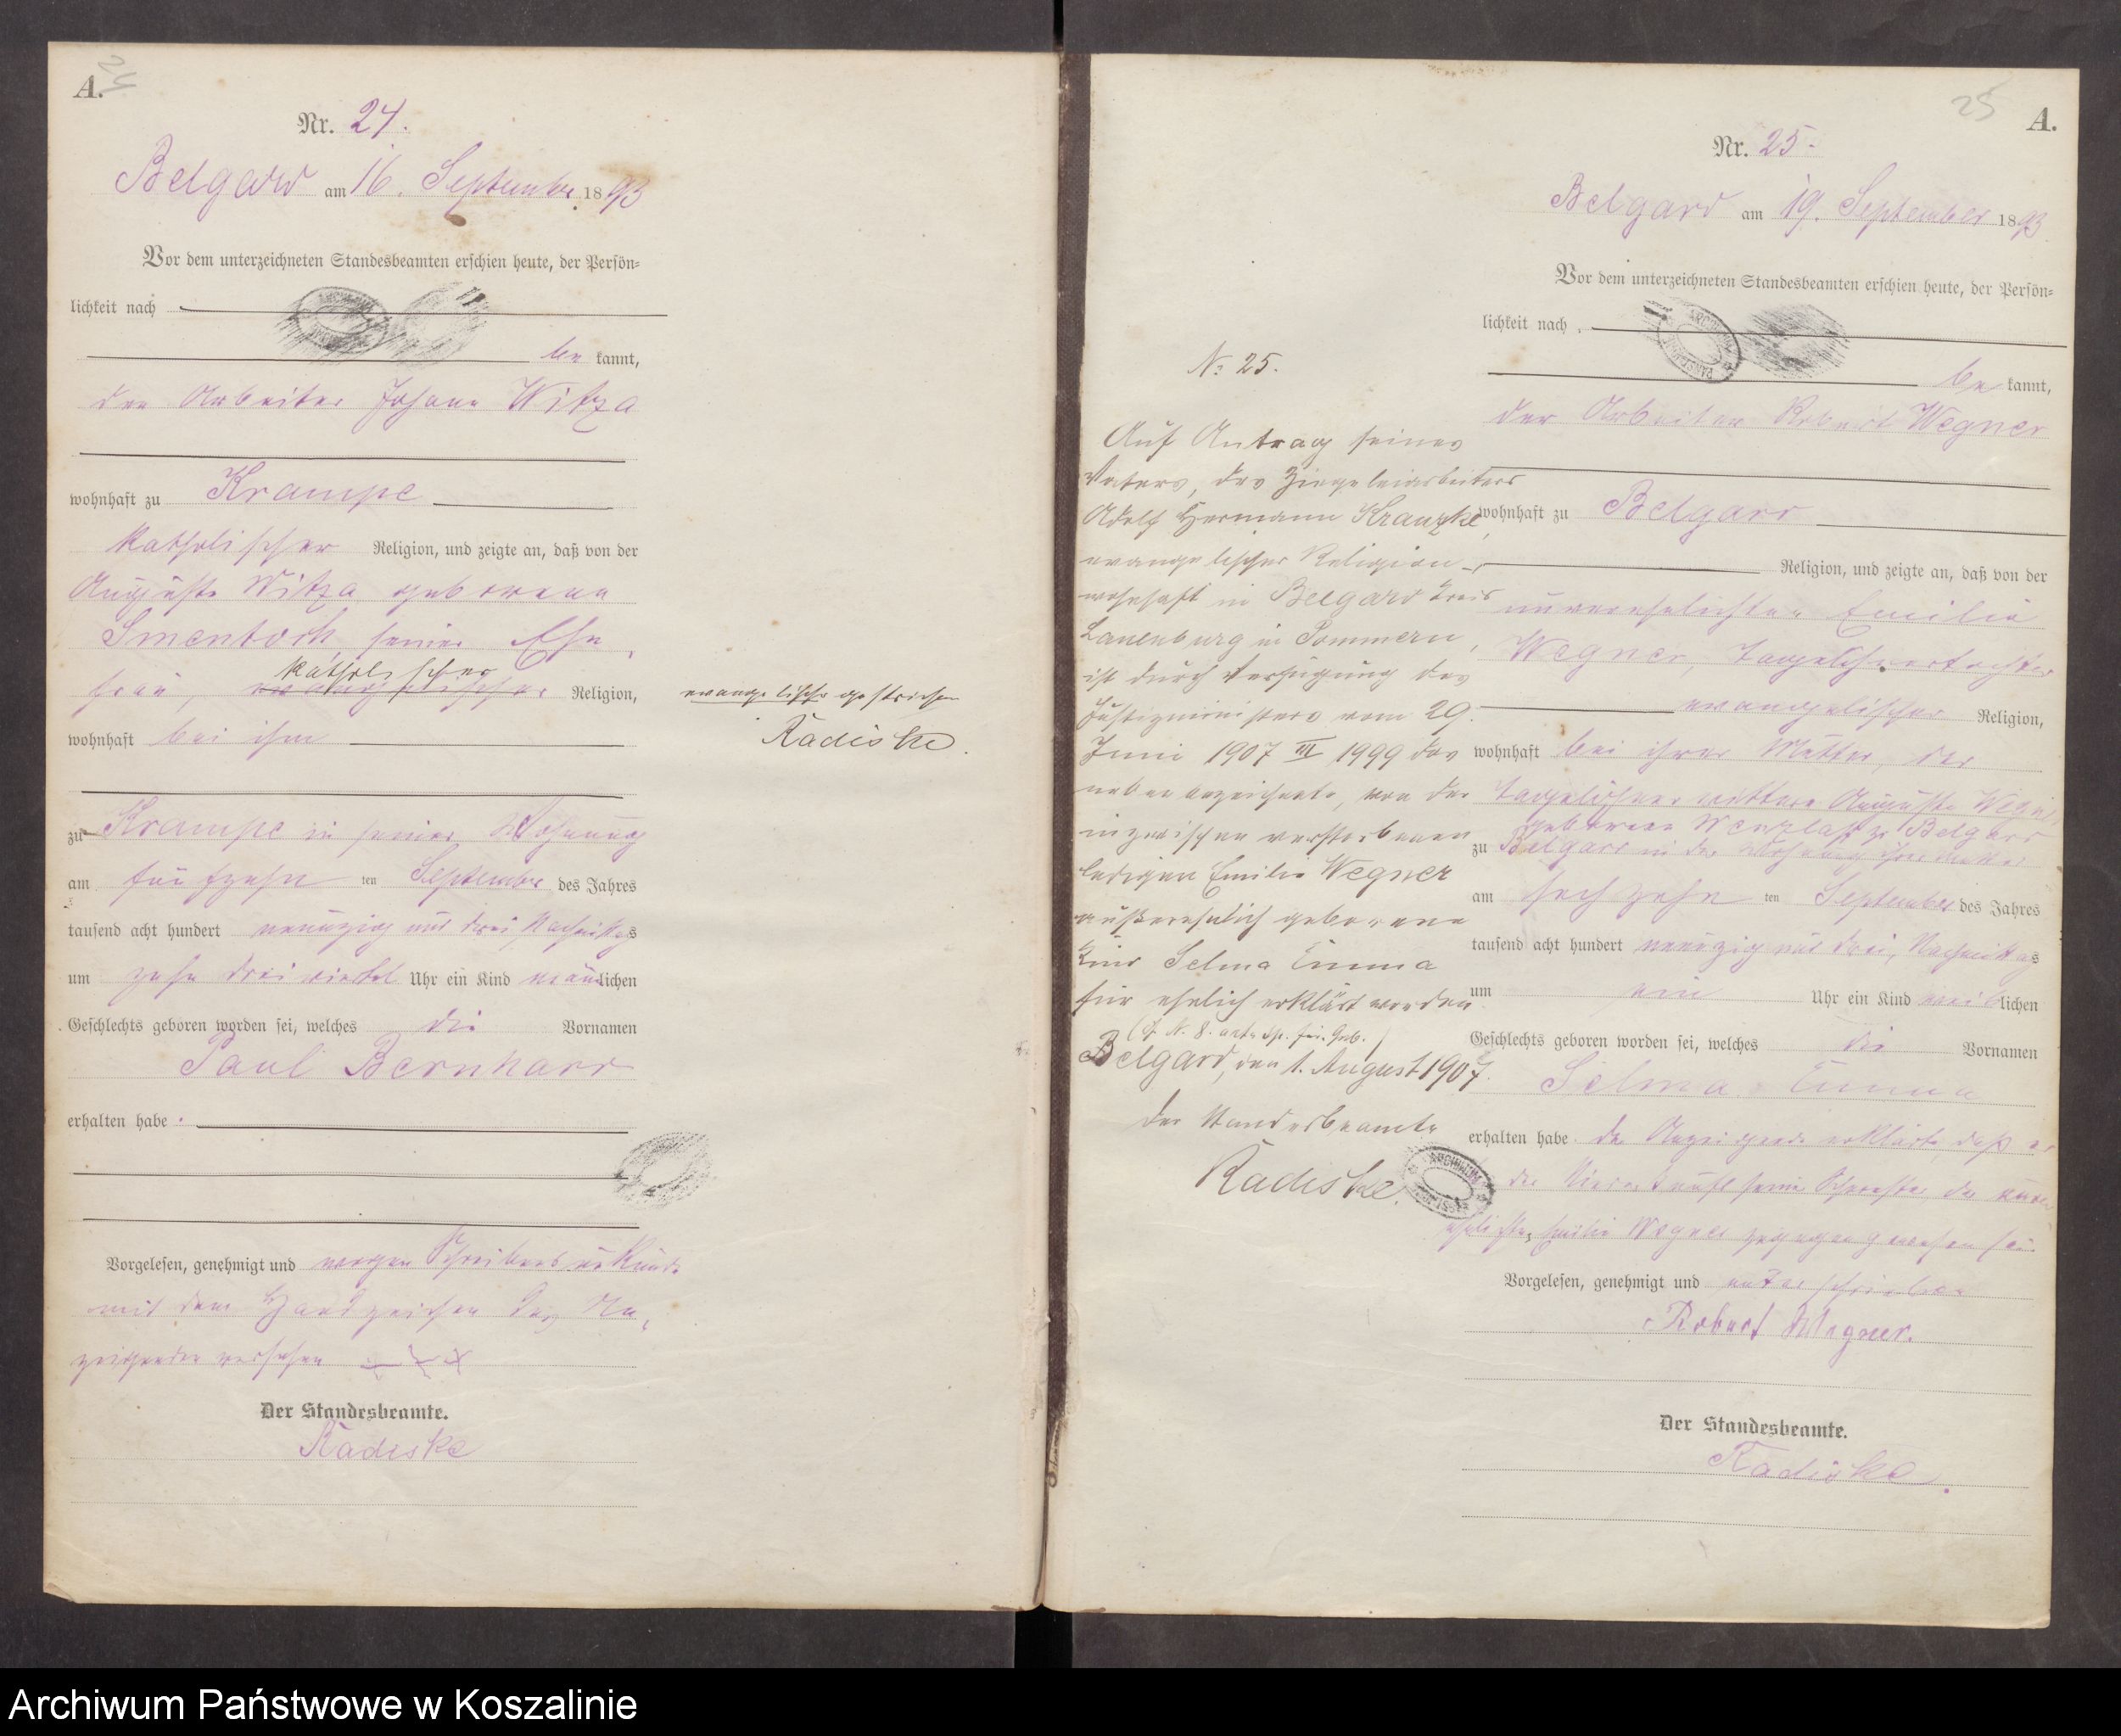 A.
24
Nr. 24.
Belgard am 16. September 1893
Vor dem unterzeichneten Standesbeamten erschien heute, der Persön-
lichkeit nach
be kannt,
der Arbeiter Johann Witza
wohnhaft zu Krampe
katholischer Religion, und zeigte an, daß von der
Auguste Witza geborenen
Smentoch, seiner Ehe-
frau, evangelischer Religion,
katholischer
wohnhaft bei ihm
zu Krampe in seiner Wohnung
am fünfzehn ten September des Jahres
tausend acht hundert neunzig und drei Nachmittags
um zehn dreiviertel Uhr ein Kind männlichen
Geschlechts geboren worden sei, welches die Vornamen
Paul Bernhard
erhalten habe.
Vorgelesen, genehmigt und wegen Schreibensunkunde
mit dem Handzeichen des An-
zeigenden versehen + + +
Der Standesbeamte.
Radiske
evangelische gestrichen
Radiske.
25
A.
Nr. 25.
Belgard am 19. September 1893
Vor dem unterzeichneten Standesbeamten erschien heute, der Persön-
lichkeit nach
be kannt,
der Arbeiter Robert Wegner
wohnhaft zu Belgard
Religion, und zeigte an, daß von der
unverehelichten Emilie
Wegner, Tagelöhnertochter
evangelischer Religion,
wohnhaft bei ihrer Mutter, der
Tagelöhnerwittwe Auguste Wegner
geborene Wenzlaff zu Belgard
zu Belgard in der Wohnung ihrer Mutter
am sechzehn ten September des Jahres
tausend acht hundert neunzig und drei, Nachmittags
um ein Uhr ein Kind weiblichen
Geschlechts geboren worden sei, welches die Vornamen
Selma Emma
erhalten habe. Der Anzeigende erklärte, daß er
bei der Niederkunft seiner Schwester der unver-
ehelichten Emilie Wegner zugegen gewesen sei.
Vorgelesen, genehmigt und unterschrieben
Robert Wegner.
Der Standesbeamte.
Radiske.
No 25.
Auf Antrag seines
Vaters, des Ziegeleiarbeiters
Adolf Hermann Kranzke,
evangelischer Religion,
wohnhaft in Belgard Kreis
Lauenburg in Pommern,
ist durch Verfügung des
Justizministers vom 29.
Juni 1907 III 1999 das
nebenbezeichnete, von der
inzwischen verstorbenen
ledigen Emilie Wegner
außerehelich geborene
Kind Selma Emma
für ehelich erklärt worden.
Belgard, den 1. August 1907.
Der Standesbeamte
Radiske.
ARCHIWUM
Archiwum Państwowe w Koszalinie